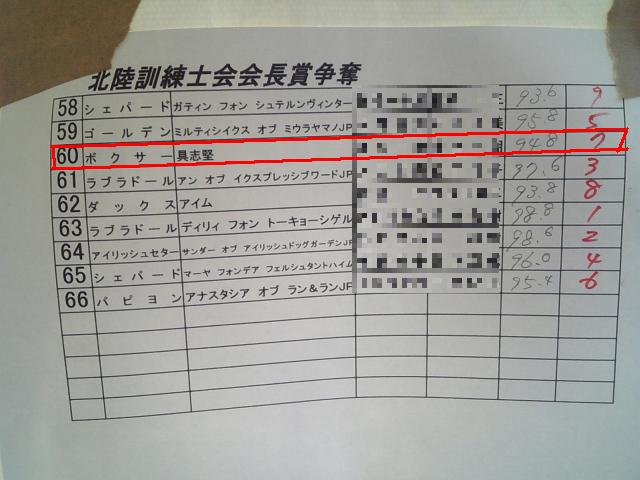 北陸訓練士会会長賞争奪
58 シェパード ガティン フォン シュテルンヴィンター 93.6 9
59 ゴールデン ミルティシイクス オブ ミウラヤマノJP 95.8 5
60 ボクサー 具志堅 94.8 7
61 ラブラドール アン オブ イクスプレッシブワードJP 97.6 3
62 ダックス アイム 93.8 8
63 ラブラドール ディリィ フォン トーキョーシゲル 98.8 1
64 アイリッシュセター サンダー オブ アイリッシュドッグガーデンJP 98.6 2
65 シェパード マーヤ フォンデア フェルシュタントハイム 96.0 4
66 パピヨン アナスタシア オブ ラン&ランJP 95.4 6